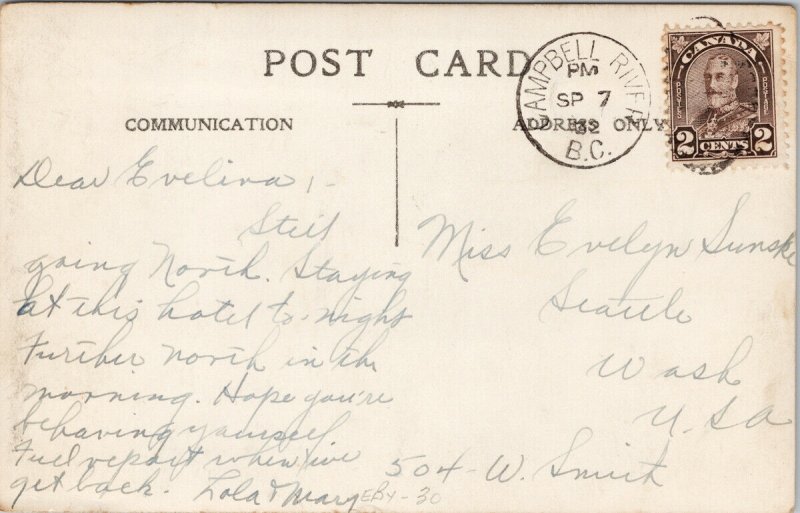 POST CARD
COMMUNICATION
ADDRESS ONLY
CAMPBELL RIVER
PM
SP 7
32
B.C.
CANADA
POSTES POSTAGE
2 CENTS 2
Dear Evelina,-
Still
going North. Staying
at this hotel to-night
Further north in the
morning. Hope you're
behaving yourself
Full report when we
get back. Lola & Mary
Miss Evelyn Sunske
Seattle
Wash
U.S.A
504-W. Smith
EBY-30